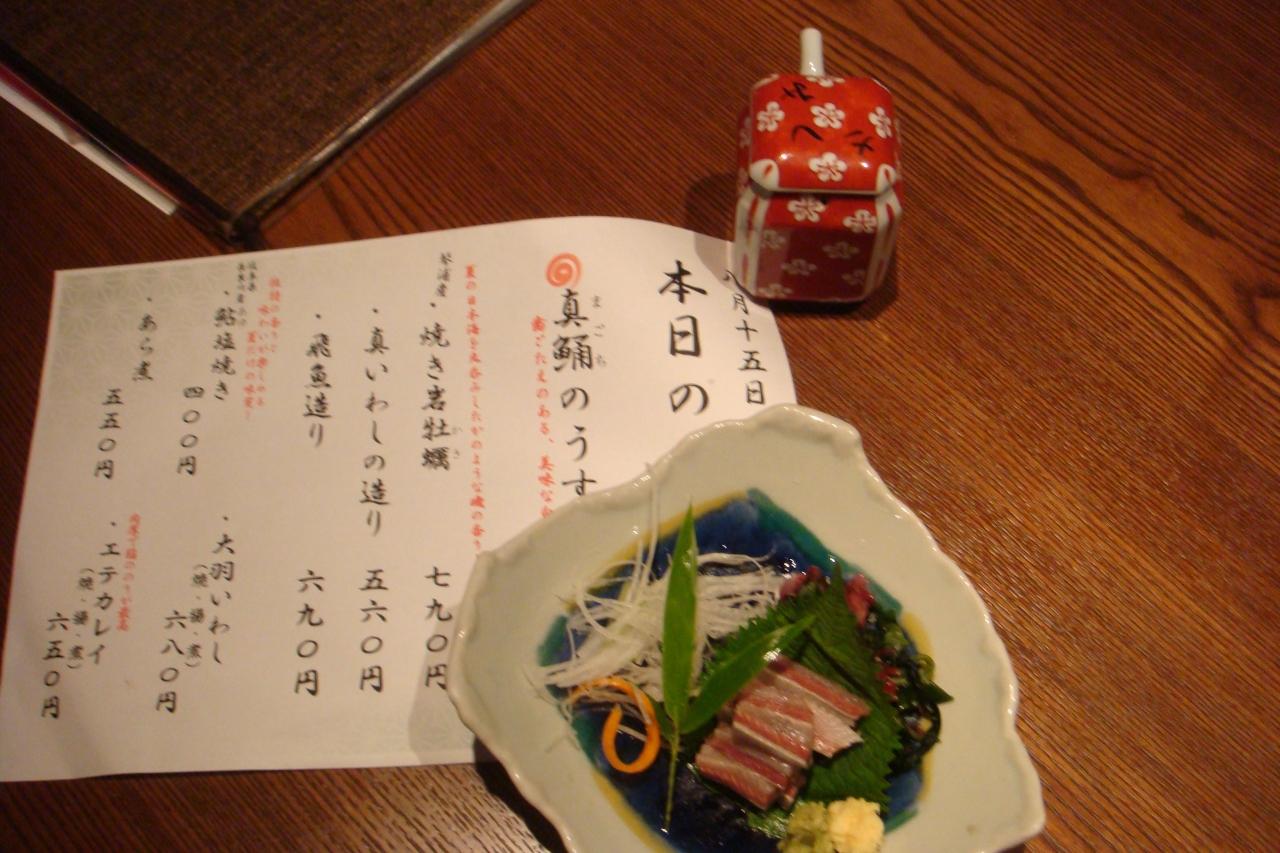 月十五日
本日の
真鯒のうす
まごち
歯ごたえのある、美味な白
夏の日本海を丸呑みしたかのような磯の香り
琴浦産
・焼き岩牡蠣
かき
七九〇円
・真いわしの造り
五六〇円
・飛魚造り
六九〇円
味わいが楽しめる
夏だけの味覚!
・鮎塩焼き
四〇〇円
・大羽いわし
(焼・揚・煮)
六八〇円
・あら煮
五五〇円
・エテカレイ
(焼・揚・煮)
六五〇円
さしみ